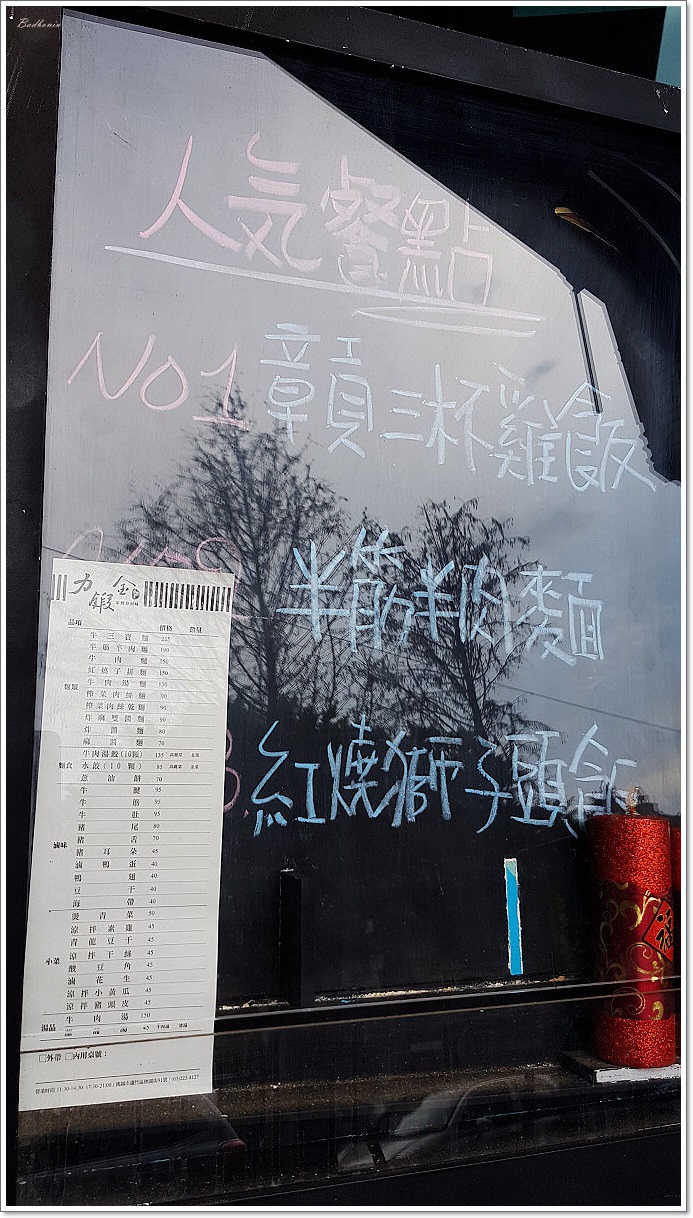 Badhouin
人氣餐點
NO1 贛三杯雞飯
半筋半肉麵
紅燒獅子頭飯
品項 價格 數量
牛三寶麵 235
半筋半肉麵 190
牛肉麵 150
紅燒子排麵 150
牛肉湯麵 130
麵類 榨菜肉絲麵 90
榨菜肉絲乾麵 90
炸麻雙醬麵 90
炸醬麵 80
麻醬麵 70
牛肉湯餃(10顆) 135 高麗菜 韭菜
麵食 水餃(10顆) 85 高麗菜 韭菜
蔥油餅 70
牛腱 95
牛筋 95
牛肚 95
豬尾 80
豬舌 70
滷味 豬耳朵 45
滷鴨蛋 40
鴨翅 40
豆干 40
海帶 40
燙青菜 50
涼拌素雞 45
青龍豆干 45
小菜 涼拌干絲 45
酸豆角 45
滷花生 45
涼拌小黃瓜 45
涼拌豬頭皮 45
牛肉湯 150
湯品
□外帶 □內用桌號：
營業時間 11:30-14:30 17:30-21:00